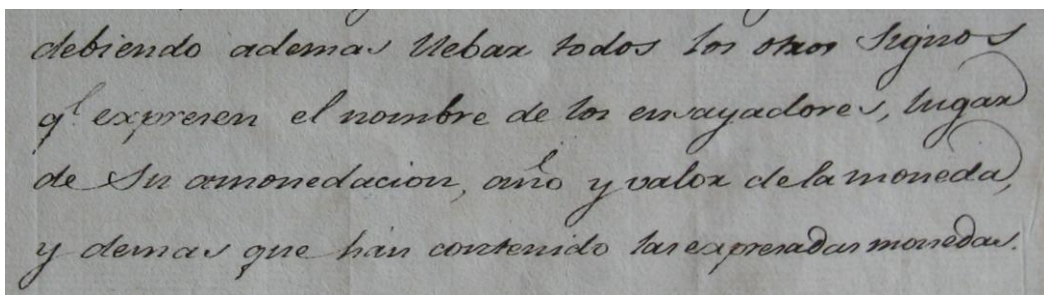 debiendo ademas llebar todos los otros signos
q.l expresen el nombre de los ensayadores, lugar
de su amonedacion, año y valor de la moneda,
y demas que han contenido las expresadas monedas.